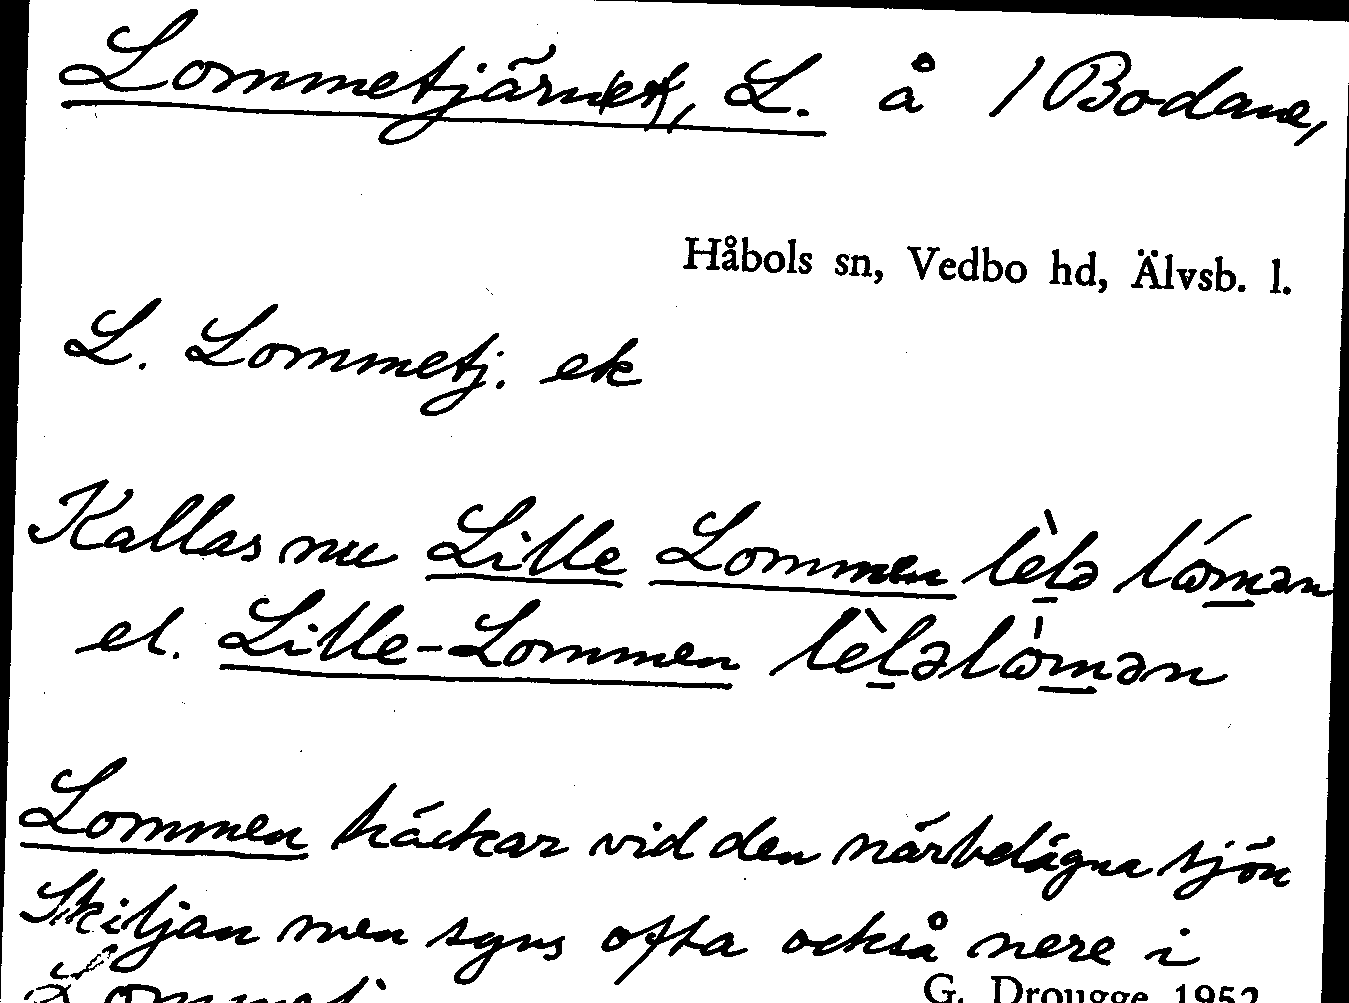 Lommetjärnet, L. å 1 Bodane,
Håbols sn, Vedbo hd, Älvsb. l.
L. Lommetj. ek
Kallas nu Lille Lommen
el. Lille-Lommen
Lommen häckar vid den närbelägna sjön
Skiljan men syns ofta också nere i
Lommetj.
G. Drougge 1952